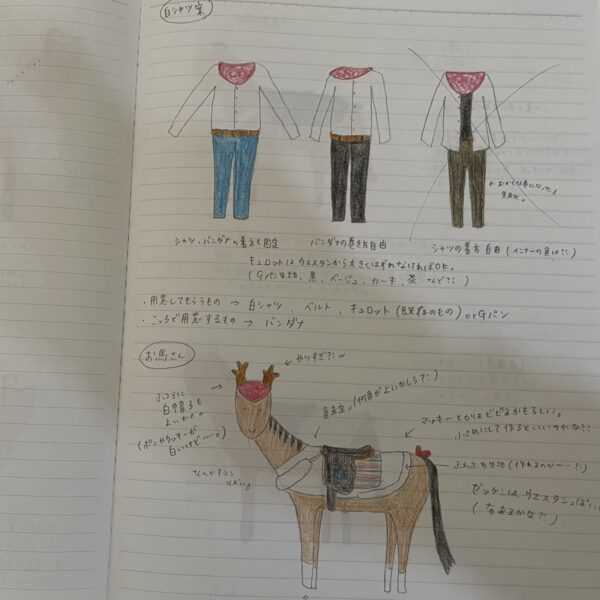 白シャツ案
おかしな事になった。
失敗。
シャツ、バンダナの着方も固定
バンダナの巻き方自由
シャツの着方自由(インナーの色は?!)
キュロットはウエスタンから大きくはずれなければOK。
(Gパン生地、黒、ベージュ、カーキ、茶 など?!)
・用意してもらうもの → 白シャツ、ベルト、キュロット(既存のもの)orGパン
・こっちで用意するもの → バンダナ
お馬さん
やりすぎ?!w
ふつうに
白帽子も
よいかと。
(ポニやクッキーが
白いけど……。)
なんかキリン
色未定。(何色がよいかしら?!)
マッキーとかはビビるかもらしい。
小さめにして作るといいのかな?!
ふわふわ生地(作れるのか…?!)
ゼッケンはウエスタンっぽい
(布あるかな?!)